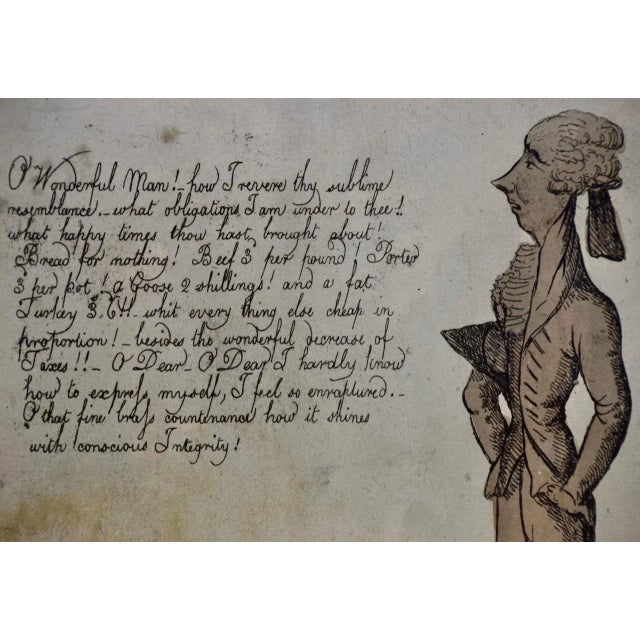 O' Wonderful Man! - how I revere thy sublime
resemblance. - what obligations I am under to thee!!
what happy times thou hast brought about!
Bread for nothing! Beef 3d per pound! Porter
3d per pot! a Goose 2 shillings! and a fat
Turkey 3s. 6d!! - whit every thing else cheap in
proportion! - besides the wonderful decrease of
Taxes!! - O Dear - O Dear I hardly know
how to expreſs myself, I feel so enraptured. -
O that fine braſs countenance how it shines
with conscious Integrity!